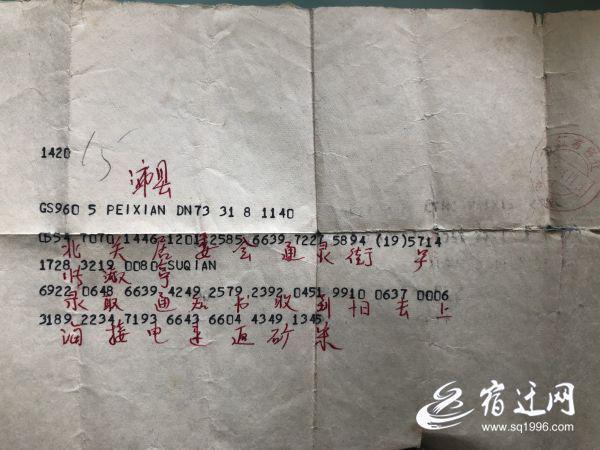 1420 15
沛县
GS960 5 PEIXIAN DN73 31 8 1140
0554 7070 1446 1201 2585 6639 7227 5894 (19)5714
北 关 居 委 会 通 泉 街
1728 3219 0080 SUQIAN
淑 亭
6922 0648 6639 4249 2579 2392 0451 9910 0637 0006
录 取 通 知 书 收 到 去 上
3189 2234 7193 6643 6604 4349 1345
海 接 电 速 返 砂
宿迁网
www.sq1996.com